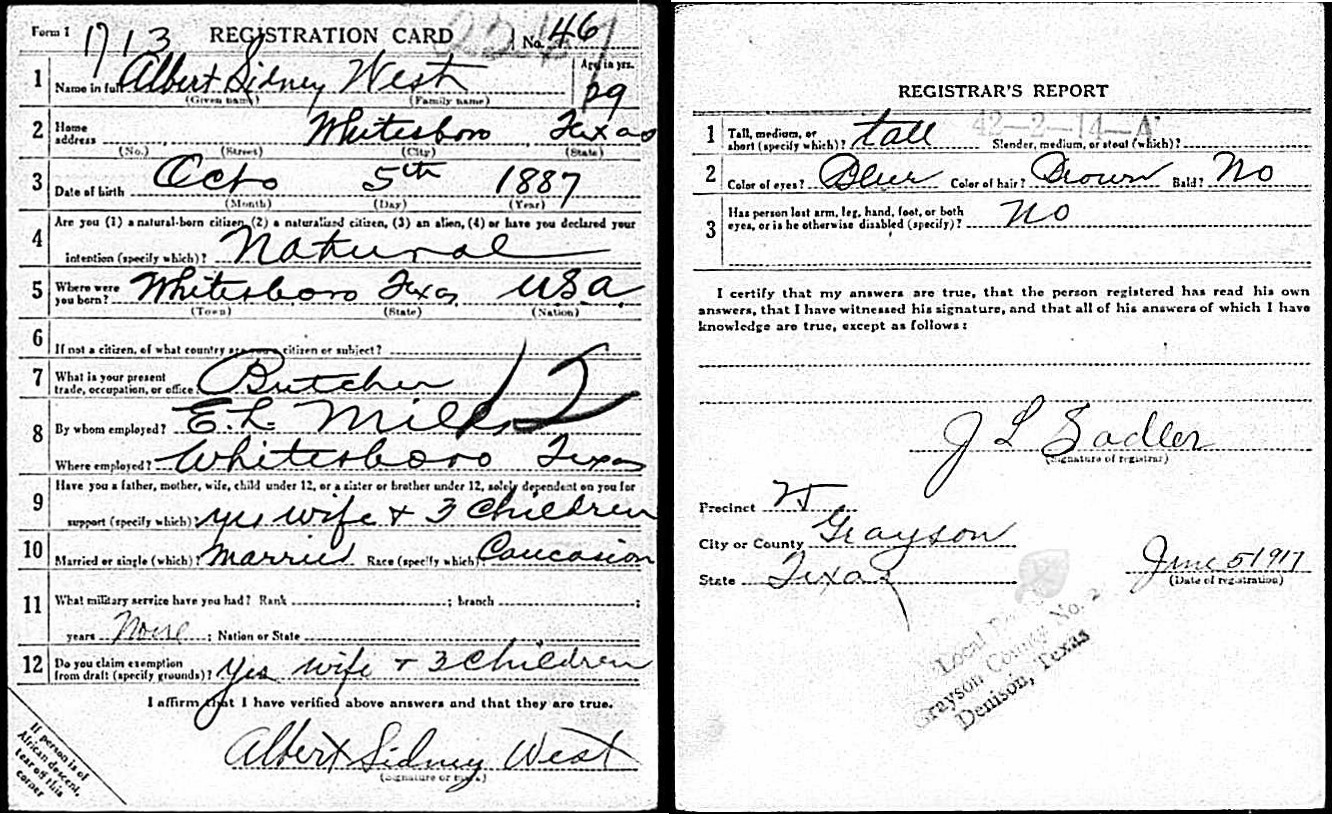 Form 1 1713 REGISTRATION CARD No. 46
1 Name in full Albert Sidney West Age in yrs.
(Given name) (Family name) 29
2 Home address Whitesboro Texas
(No.) (Street) (City) (State)
3 Date of birth Octo 5th 1887
(Month) (Day) (Year)
4 Are you (1) a natural-born citizen, (2) a naturalized citizen, (3) an alien, (4) or have you declared your
intention (specify which)? Natural
5 Where were you born? Whitesboro Texas U.S.A.
(Town) (State) (Nation)
6 If not a citizen, of what country are you a citizen or subject?
7 What is your present trade, occupation, or office? Butcher 12
8 By whom employed? E.L. Mills
Where employed? Whitesboro Texas
9 Have you a father, mother, wife, child under 12, or a sister or brother under 12, solely dependent on you for
support (specify which)? yes wife + 3 Children
10 Married or single (which)? Married Race (specify which)? Caucasion
11 What military service have you had? Rank ; branch ;
years None ; Nation or State
12 Do you claim exemption from draft (specify grounds)? Yes wife + 3 Children
I affirm that I have verified above answers and that they are true.
Albert Sidney West
(Signature or mark)
If person is of
African descent,
tear off this
corner
REGISTRAR'S REPORT
42-2-14-A
1 Tall, medium, or short (specify which)? tall Slender, medium, or stout (which)?
2 Color of eyes? Blue Color of hair? Brown Bald? No
3 Has person lost arm, leg, hand, foot, or both eyes, or is he otherwise disabled (specify)? No
I certify that my answers are true, that the person registered has read his own
answers, that I have witnessed his signature, and that all of his answers of which I have
knowledge are true, except as follows:
J L Sadler
(Signature of registrar)
Precinct
City or County Grayson
State Texas
June 5 1917
(Date of registration)
Local
Grayson County No. 2
Denison, Texas